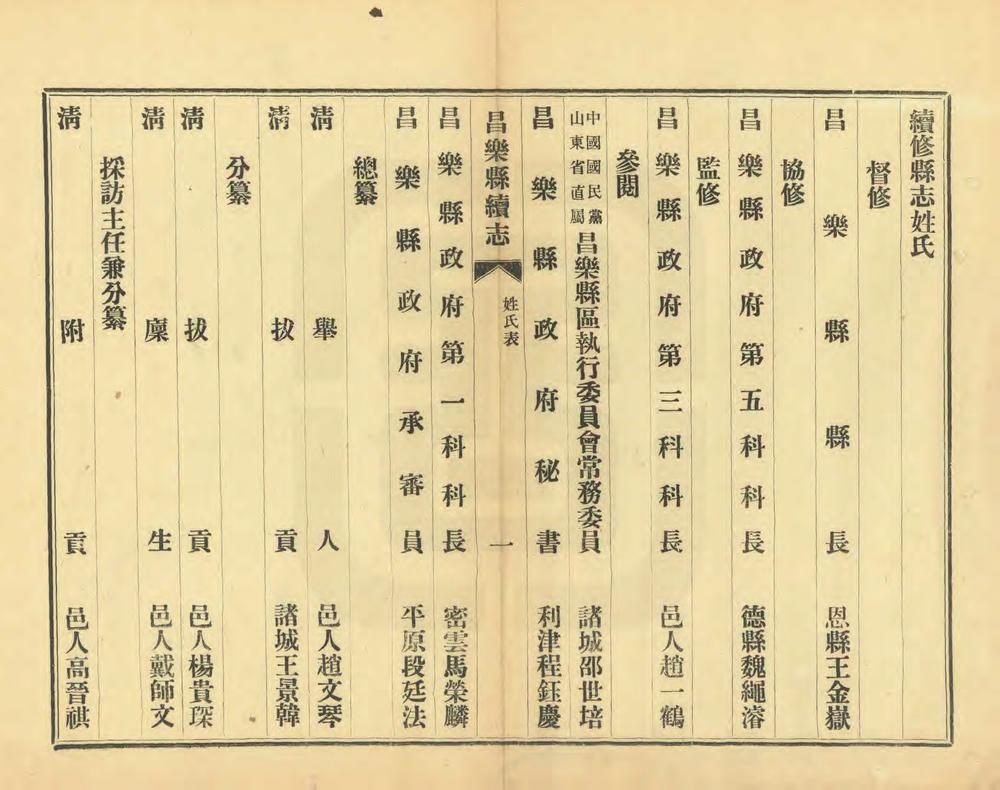 續修縣志姓氏
督修
昌樂縣縣長 恩縣王金嶽
協修
昌樂縣政府第五科科長 德縣魏繩濬
監修
昌樂縣政府第三科科長 邑人趙一鶴
參閱
中國國民黨山東省直屬昌樂縣區執行委員會常務委員 諸城邵世培
昌樂縣政府秘書 利津程鈺慶
昌樂縣續志 姓氏表 一
昌樂縣政府第一科科長 密雲馬榮麟
昌樂縣政府承審員 平原段廷法
總纂
清舉人 邑人趙文琴
清拔貢 諸城王景韓
分纂
清拔貢 邑人楊貴琛
清廩生 邑人戴師文
採訪主任兼分纂
清附貢 邑人高晉祺